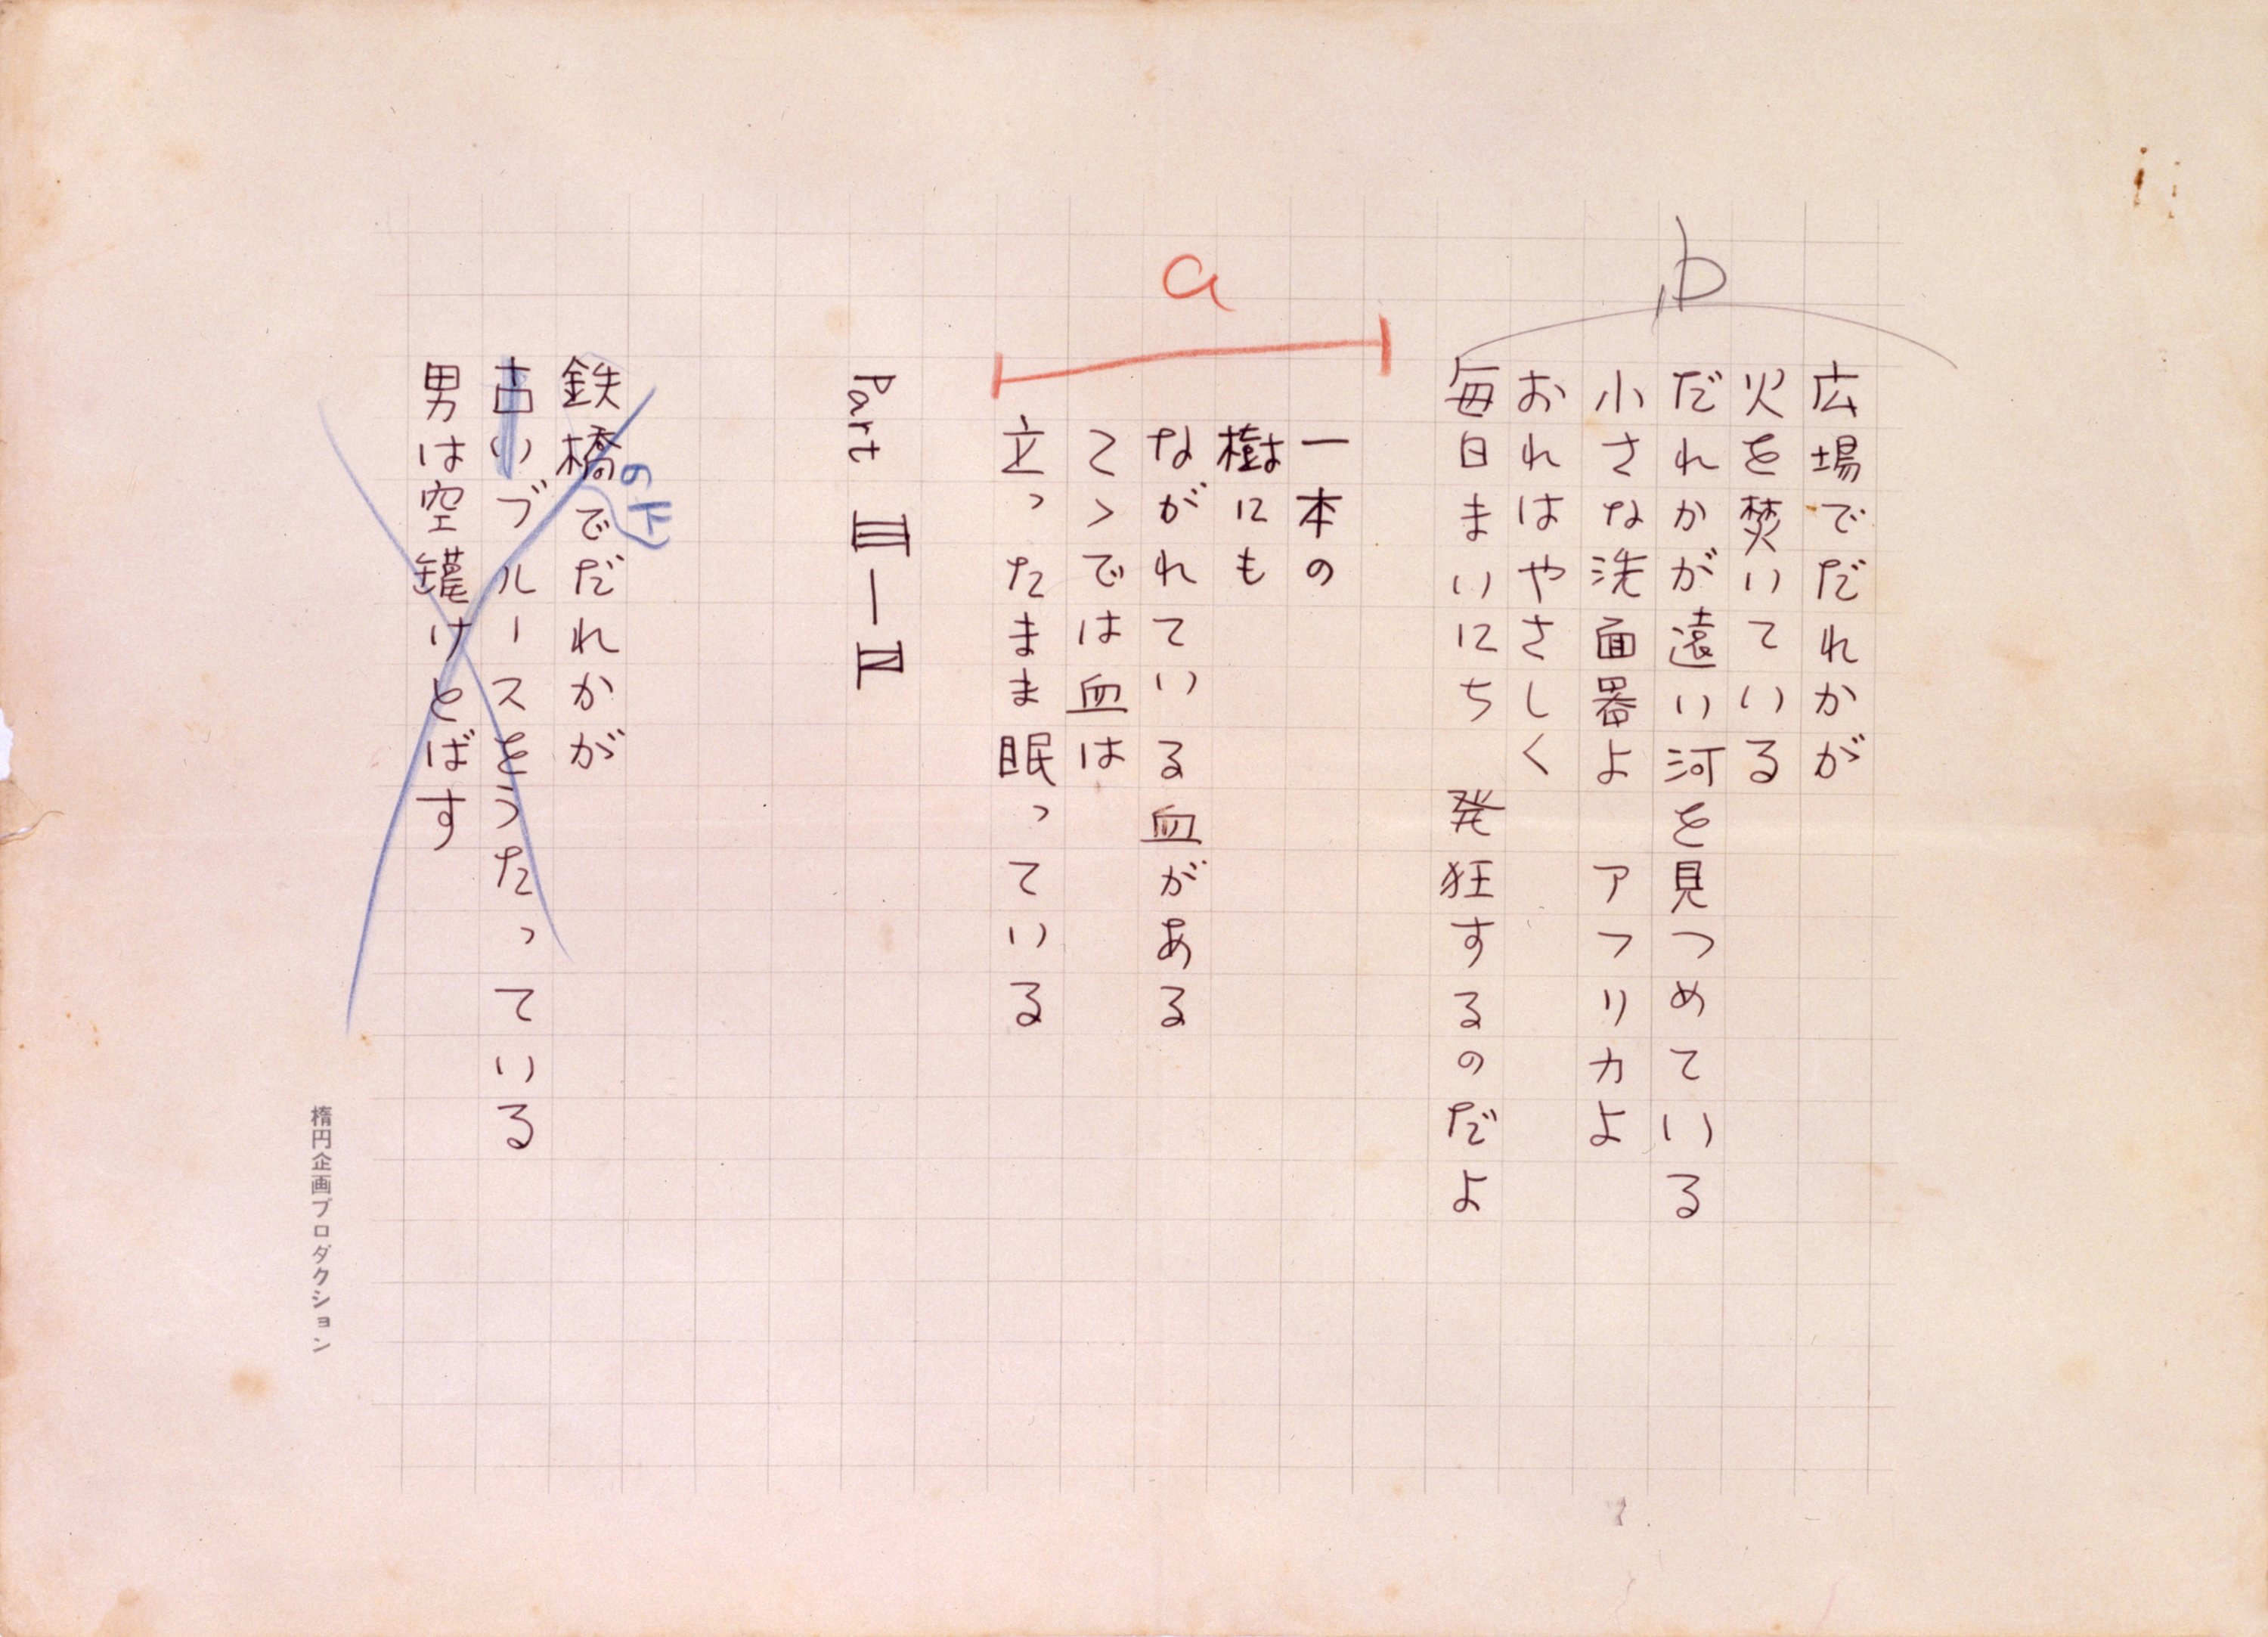 b
広場でだれかが
火を焚いている
だれかが遠い河を見つめている
小さな洗面器よ　アフリカよ
おれはやさしく
毎日まいにち　発狂するのだよ
a
一本の
樹にも
ながれている血がある
こゝでは血は
立ったまま眠っている
Part III—IV
の下
鉄橋でだれかが
古いブルースをうたっている
男は空罐けとばす
楕円企画プロダクション